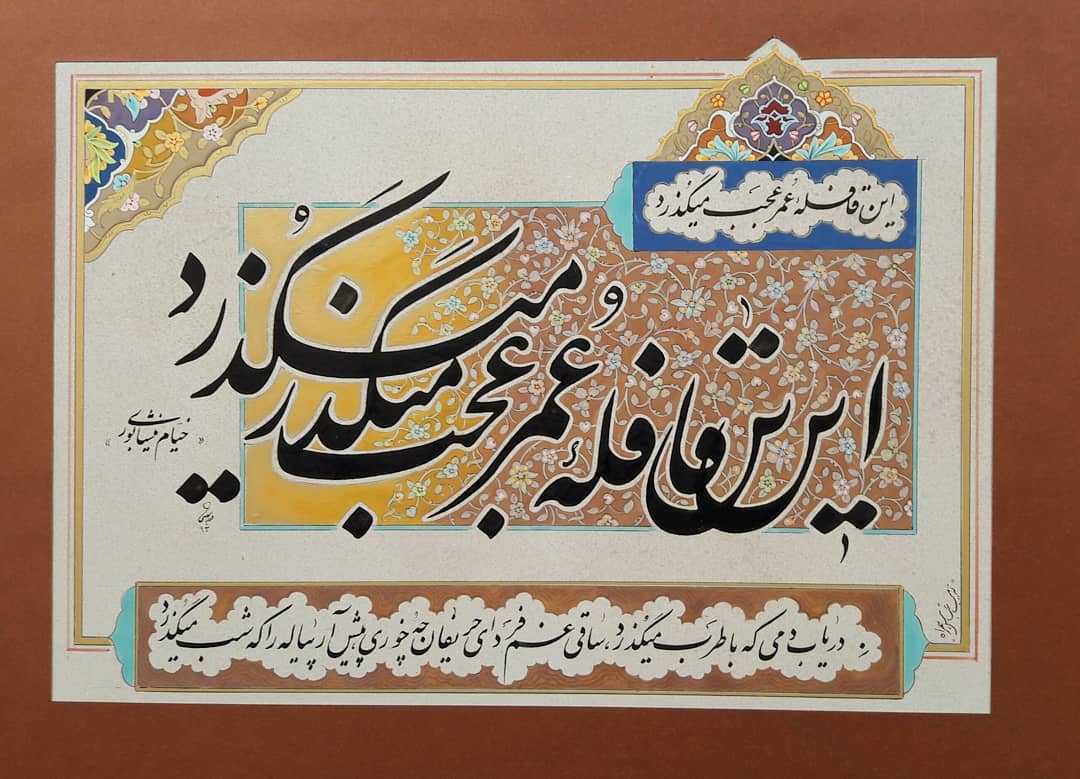 این قافلهٔ عمر عجب میگذرد
این قافلهٔ عمر عجب میگذرد میگذرد
« خیام نیشابوری »
دریاب دمی که با طرب میگذرد، ساقی غم فردای حریفان چه خوری پیش آر پیاله را که شب میگذرد